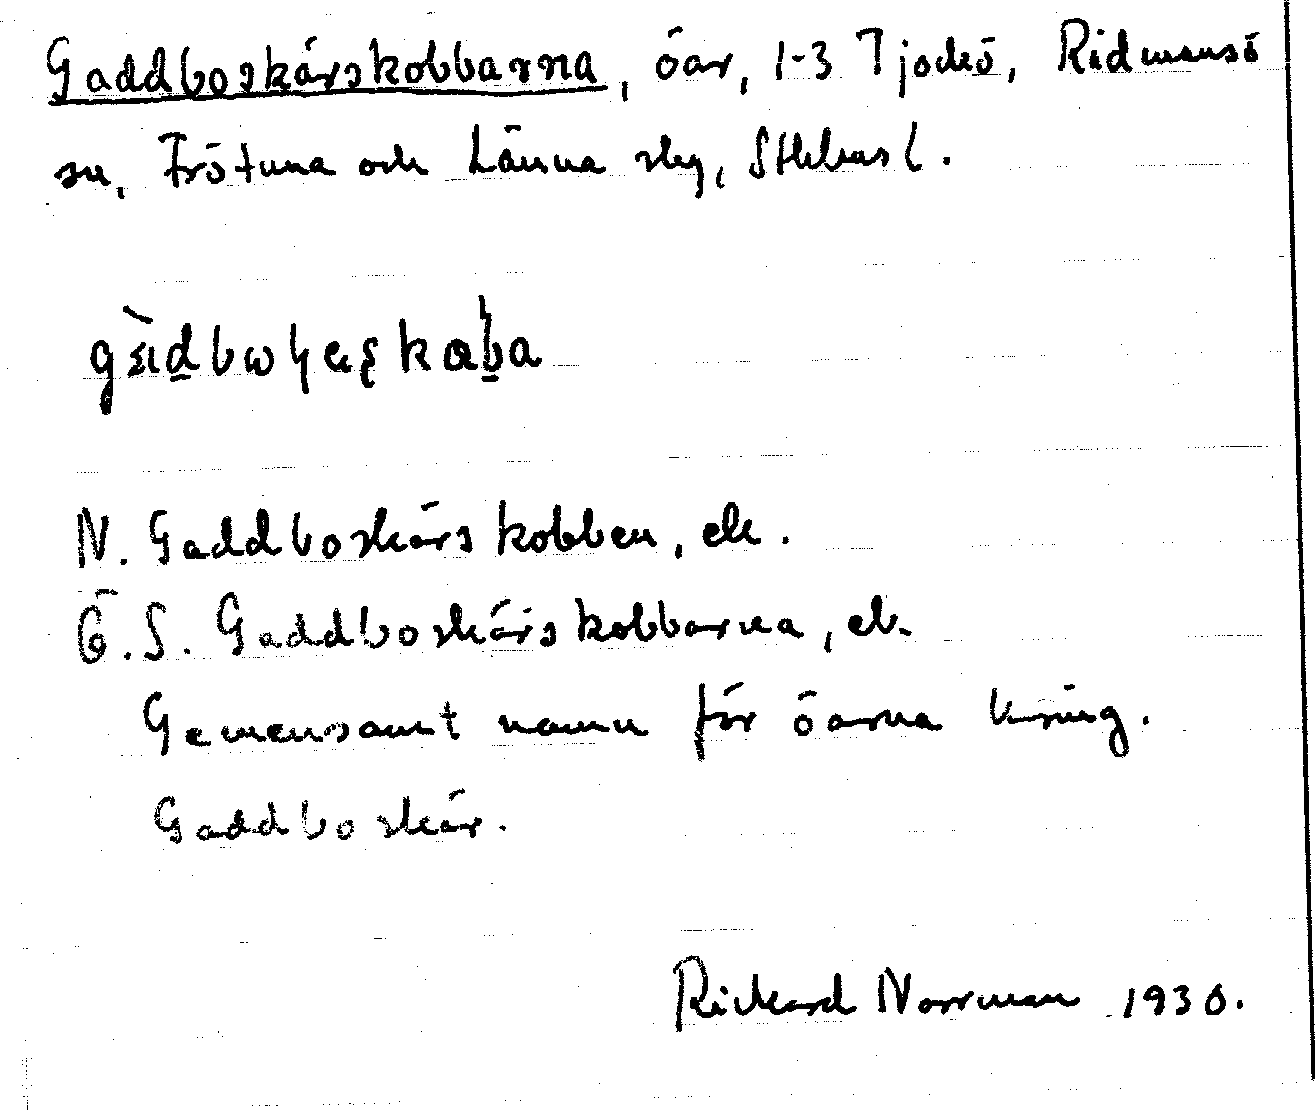 Gaddboskärskobbarna, öar, 1-3 Tjockö, Rådmansö
sn, Frötuna och Länna slg, Sthlms l.
N. Gaddboskärskobben, ek.
Ö. S. Gaddboskärskobbarna, ek.
Gemensamt namn för öarna kring.
Gaddboskär.
Rickard Norrman 1930.